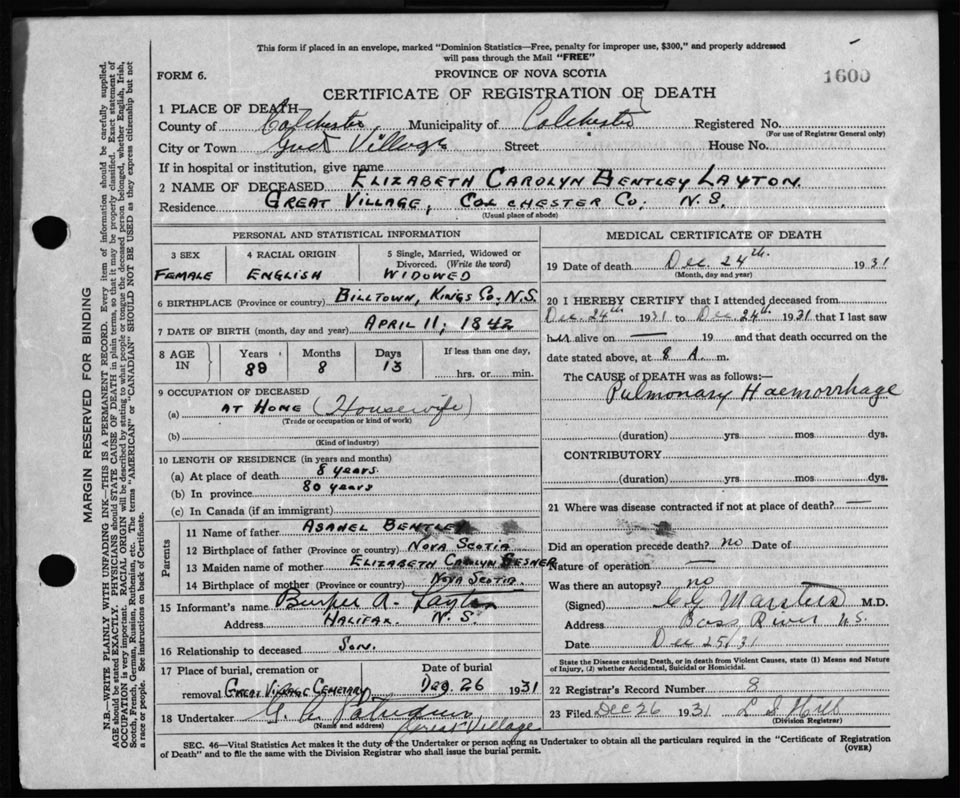 This form if placed in an envelope, marked "Dominion Statistics—Free, penalty for improper use, $300," and properly addressed
will pass through the Mail "FREE"
FORM 6.
PROVINCE OF NOVA SCOTIA
1600
CERTIFICATE OF REGISTRATION OF DEATH
1 PLACE OF DEATH—
County of Colchester Municipality of Colchester Registered No.
(For use of Registrar General only)
City or Town Great Village Street House No.
If in hospital or institution, give name
2 NAME OF DECEASED ELIZABETH CAROLYN BENTLEY LAYTON.
Residence GREAT VILLAGE, COLCHESTER CO; N.S.
(Usual place of abode)
PERSONAL AND STATISTICAL INFORMATION
3 SEX
FEMALE
4 RACIAL ORIGIN
ENGLISH
5 Single, Married, Widowed or
Divorced. (Write the word)
WIDOWED
6 BIRTHPLACE (Province or country) BILLTOWN, KINGS CO; N.S.
7 DATE OF BIRTH (month, day and year) APRIL 11, 1842
8 AGE
IN
Years
89
Months
8
Days
13
If less than one day,
hrs. or min.
9 OCCUPATION OF DECEASED
(a) AT HOME (Housewife)
(Trade or occupation or kind of work)
(b)
(Kind of industry)
10 LENGTH OF RESIDENCE (in years and months)
(a) At place of death 8 years.
(b) In province 80 years
(c) In Canada (if an immigrant)
Parents
11 Name of father ASAHEL BENTLEY
12 Birthplace of father (Province or country) NOVA SCOTIA
13 Maiden name of mother ELIZABETH CAROLYN GESNER
14 Birthplace of mother (Province or country) NOVA SCOTIA.
15 Informant's name Burpee A. Layton
Address HALIFAX. N.S.
16 Relationship to deceased SON.
17 Place of burial, cremation or
removal GREAT VILLAGE CEMETARY
Date of burial
Dec. 26 1931
18 Undertaker G.
(Name and address)
Great Village
MEDICAL CERTIFICATE OF DEATH
19 Date of death Dec. 24th. 1931
(Month, day and year)
20 I HEREBY CERTIFY that I attended deceased from
Dec. 24th 1931 to Dec. 24th 1931 that I last saw
her alive on — 19 and that death occurred on the
date stated above, at 8 A. m.
The CAUSE of DEATH was as follows:—
Pulmonary Haemorrhage
(duration) yrs. mos dys.
CONTRIBUTORY
(duration) yrs. mos. dys.
21 Where was disease contracted if not at place of death? —
Did an operation precede death? no Date of
Nature of operation —
Was there an autopsy? no
(Signed) Marsters M.D.
Address Bass River N.S.
Date Dec 25/31
State the Disease causing Death, or in death from Violent Causes, state (1) Means and Nature
of Injury, (2) whether Accidental, Suicidal or Homicidal.
22 Registrar's Record Number 8
23 Filed Dec 26 1931 L S Hill
(Division Registrar)
SEC. 46—Vital Statistics Act makes it the duty of the Undertaker or person acting as Undertaker to obtain all the particulars required in the "Certificate of Registration
of Death" and to file the same with the Division Registrar who shall issue the burial permit.
(OVER)
MARGIN RESERVED FOR BINDING
N.B.—WRITE PLAINLY WITH UNFADING INK—THIS IS A PERMANENT RECORD. Every item of information should be carefully supplied.
AGE should be stated EXACTLY. PHYSICIANS should STATE CAUSE OF DEATH in plain terms, so that it may be properly classified. Exact statement of
OCCUPATION is very important. RACIAL ORIGIN will be described by stating to what people or tongue the deceased person belonged, whether English, Irish,
Scotch, French, German, Russian, Ruthenian, etc. The terms "AMERICAN" or "CANADIAN" SHOULD NOT BE USED as they express citizenship but not
a race or people. See instructions on back of Certificate.